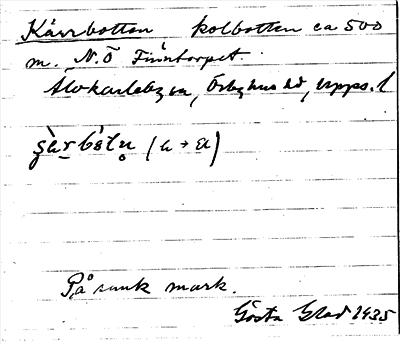 Kärrbotten kolbotten ca 500
m. N.Ö Finntorpet.
Älvkarleby sn, Örbyhus hd, Upps. l
(a → a)
På sank mark.
Gösta Blad 1935